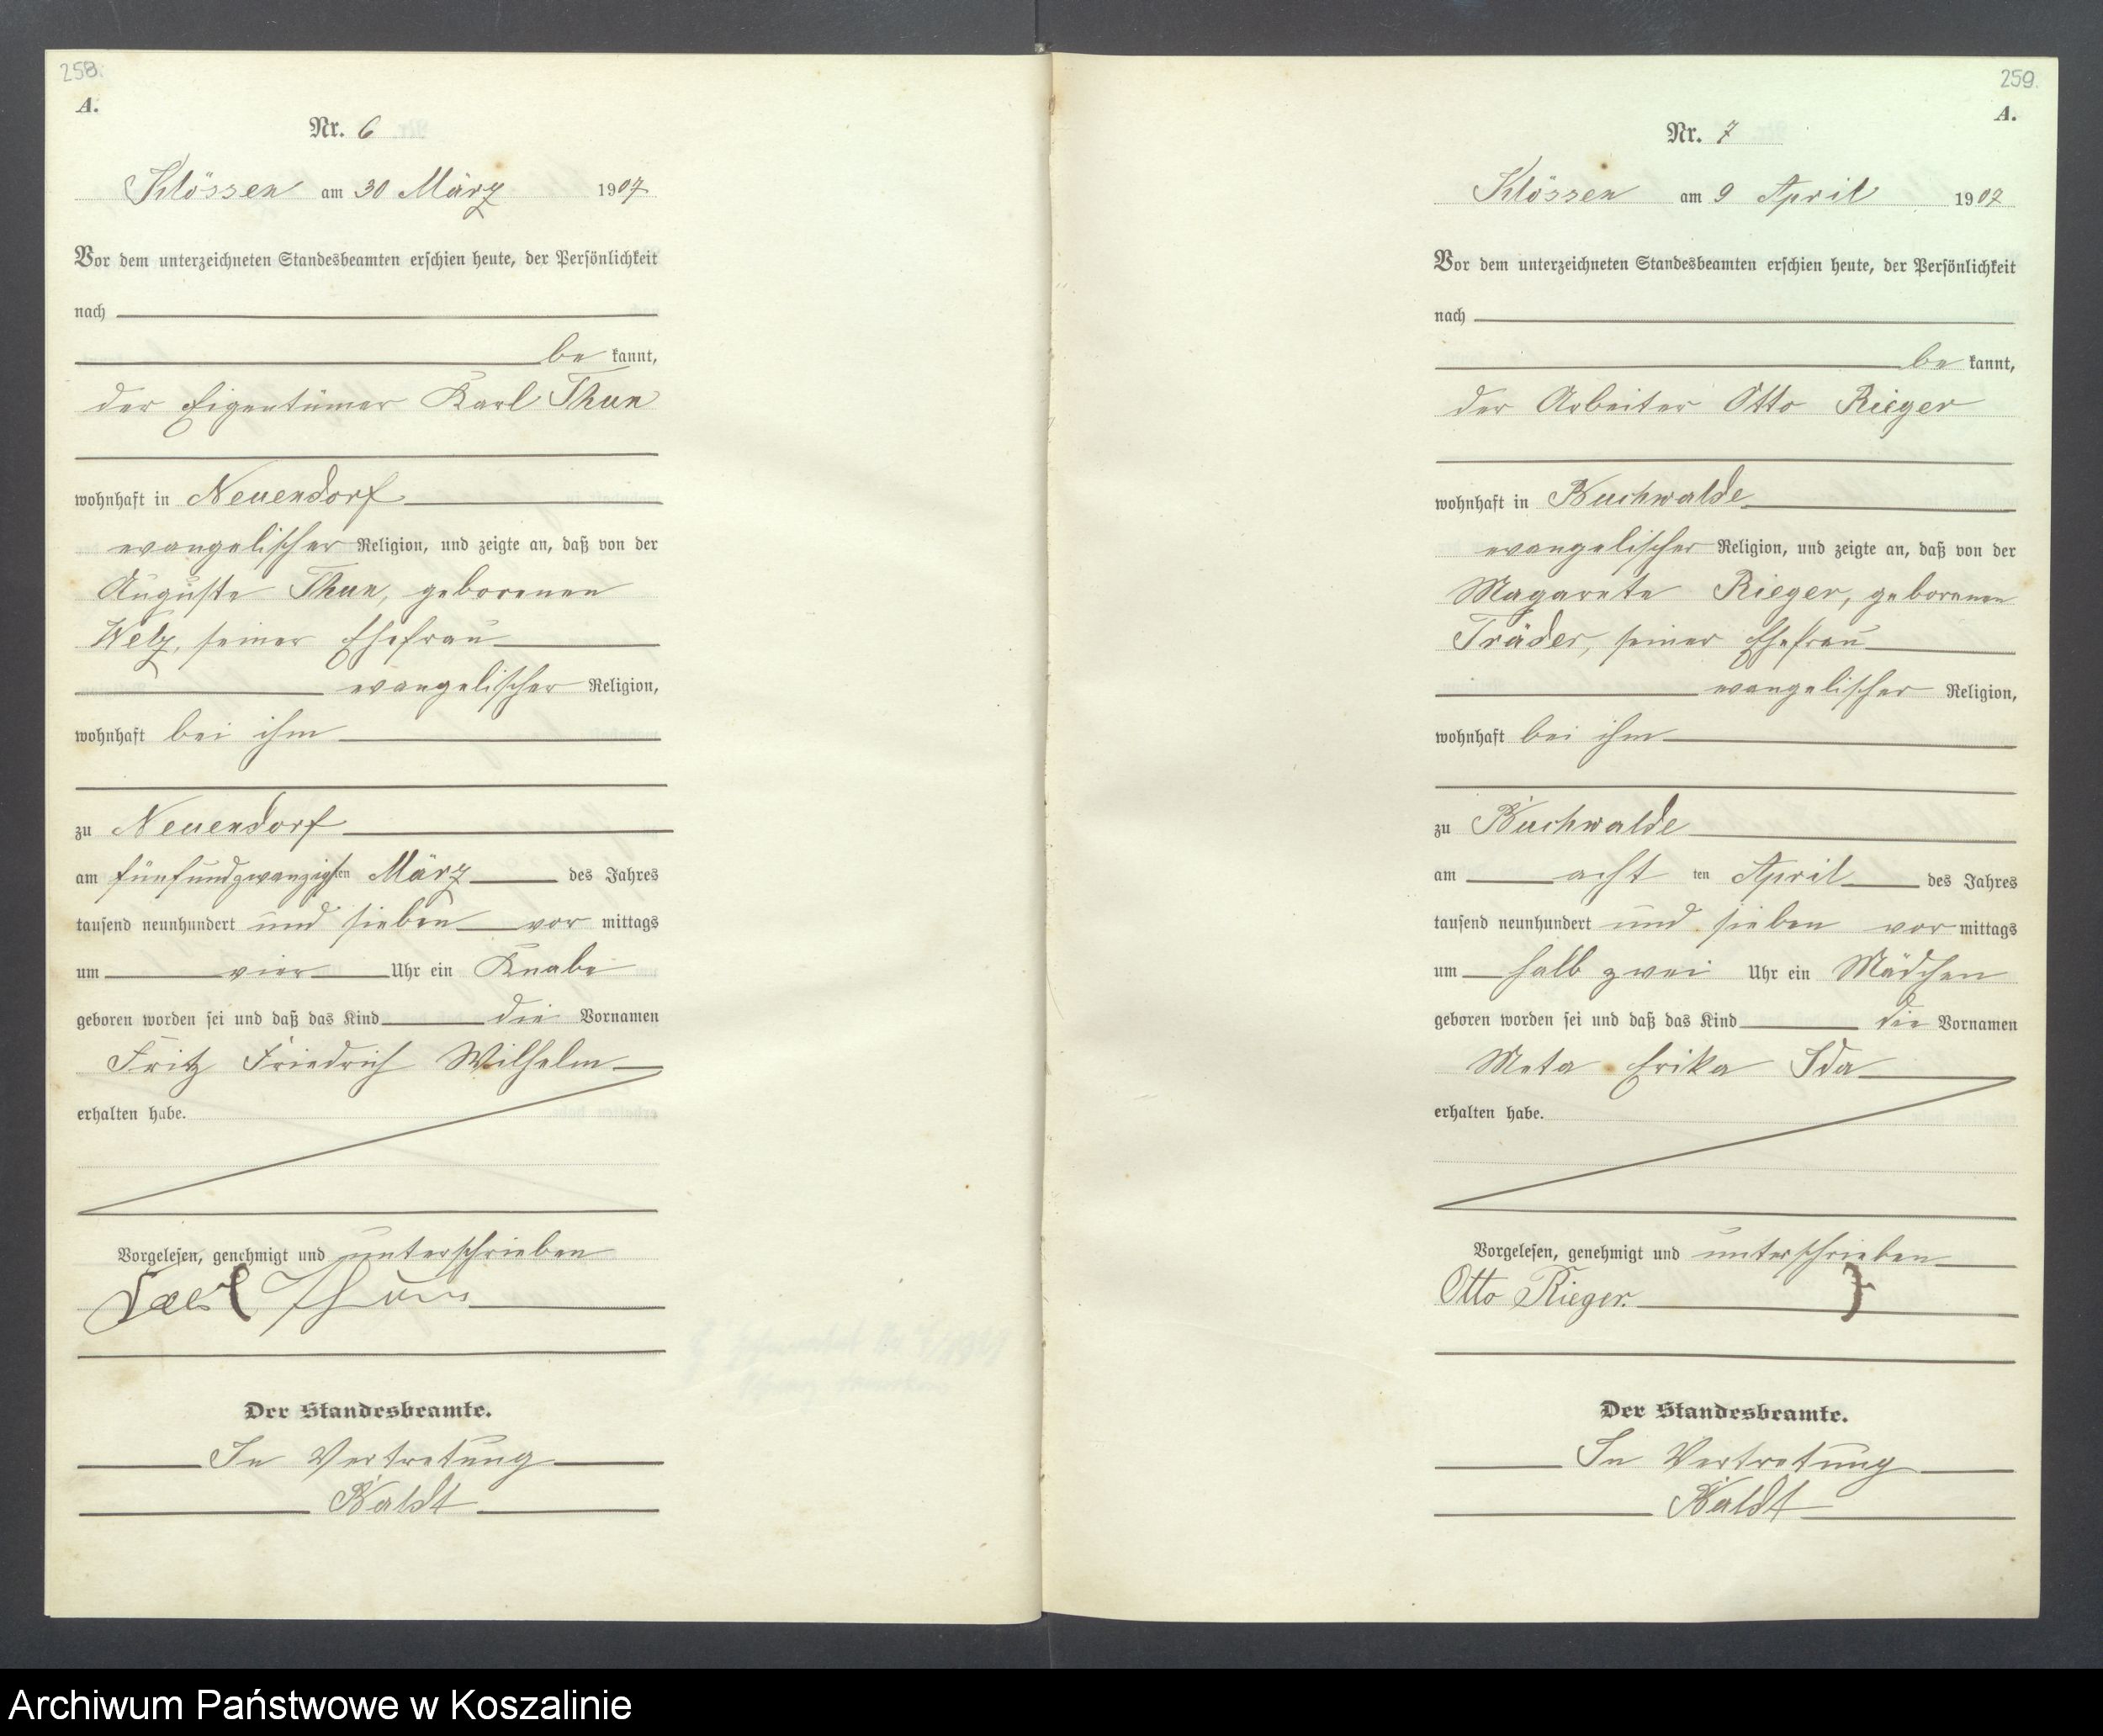 258.
A.
Nr. 6
Klössen am 30 März 1907
Vor dem unterzeichneten Standesbeamten erschien heute, der Persönlichkeit
nach
be kannt,
der Eigentümer Karl Thun
wohnhaft in Neuendorf
evangelischer Religion, und zeigte an, daß von der
Auguste Thun, geborenen
Welz, seiner Ehefrau
evangelischer Religion,
wohnhaft bei ihm
zu Neuendorf
am fünfundzwanzigsten März des Jahres
tausend neunhundert und sieben vor mittags
um vier Uhr ein Knabe
geboren worden sei und daß das Kind die Vornamen
Fritz Friedrich Wilhelm
erhalten habe.
Vorgelesen, genehmigt und unterschrieben
Karl Thun
Der Standesbeamte.
In Vertretung
259.
A.
Nr. 7
Klössen am 9 April 1907
Vor dem unterzeichneten Standesbeamten erschien heute, der Persönlichkeit
nach
be kannt,
der Arbeiter Otto Rieger
wohnhaft in Buchwalde
evangelischer Religion, und zeigte an, daß von der
Magarete Rieger, geborenen
Träder, seiner Ehefrau
evangelischer Religion,
wohnhaft bei ihm
zu Buchwalde
am acht ten April des Jahres
tausend neunhundert und sieben vor mittags
um halb zwei Uhr ein Mädchen
geboren worden sei und daß das Kind die Vornamen
Meta Erika Ida
erhalten habe.
Vorgelesen, genehmigt und unterschrieben
Otto Rieger.
Der Standesbeamte.
In Vertretung
Archiwum Państwowe w Koszalinie